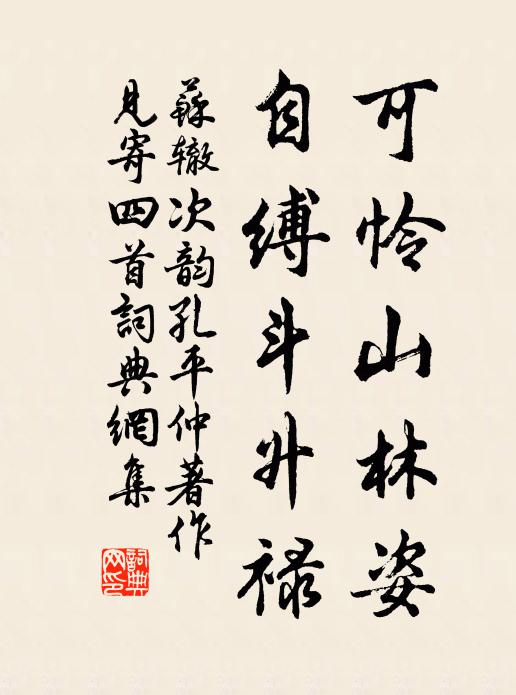 可怜山林姿
自缚斗升禄
蘇辙次韵孔平仲著作
見寄四首詞典網集
詞典網印